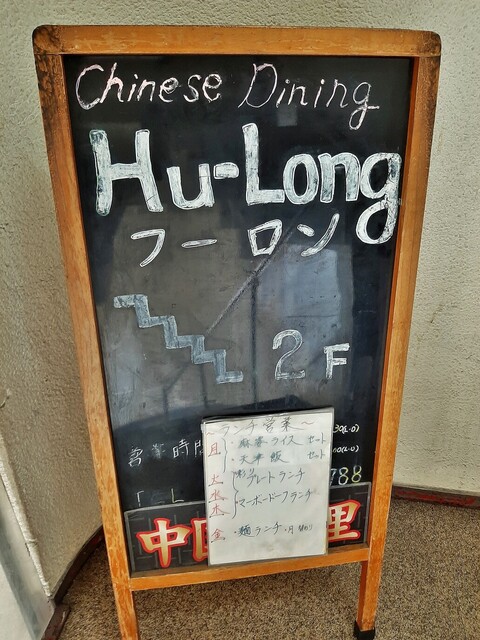 Chinese Dining
Hu-Long
フーロン
2F
～ランチ営業～
月 ・麻婆ライス セット
・天津飯 セット
火 プレートランチ
水
木 ・マーボードーフランチ
金 ・麺ランチ
営業時間
788
TEL
中 理